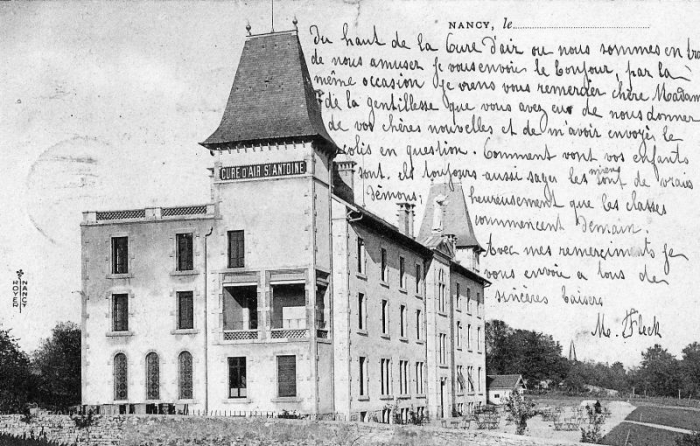 NANCY, le
Du haut de la Cure d'air ou nous sommes en tra
de nous amuser je vous envoie le bonjour, par la
même occasion je viens vous remercier chère Madam
de la gentillesse que vous avez eu de nous donner
de vos chères nouvelles et de m'avoir envoyés le
colis en question. Comment vont vos enfants
sont ils toujours aussi sages les miens sont de vrais
démons, heureusement que les classes
commencent demain.
Avec mes remerciments je
vous envoie a tous de
sincères baisers
M. Fleck
CURE D'AIR ST ANTOINE
HOYER NANCY